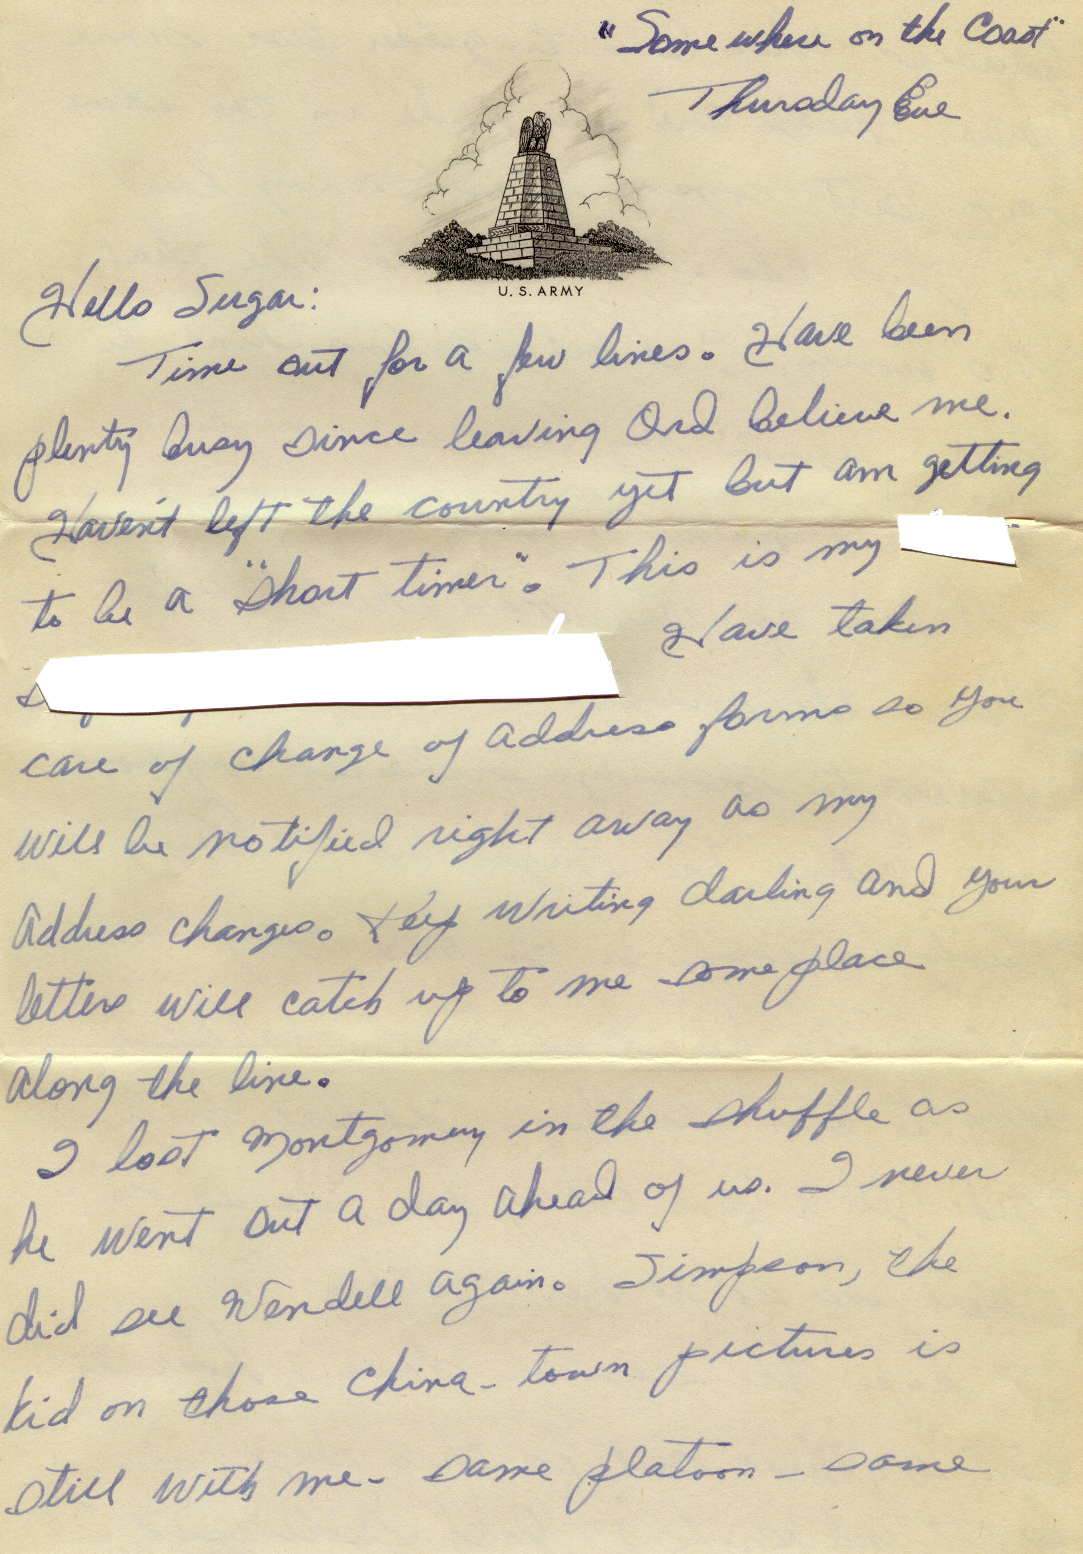 "Somewhere on the Coast"
Thursday Eve
U. S. ARMY
Hello Sugar:
Time out for a few lines. Have been
plenty busy since leaving Ord believe me.
Haven't left the country yet but am getting
to be a "short timer". This is my
Have taken
care of change of address forms so you
will be notified right away as my
address changes. Keep writing darling and your
letters will catch up to me someplace
along the line.
I lost Montgomery in the shuffle as
he went out a day ahead of us. I never
did see Wendell again. Simpson, the
kid on those China-town pictures is
still with me - same platoon - same